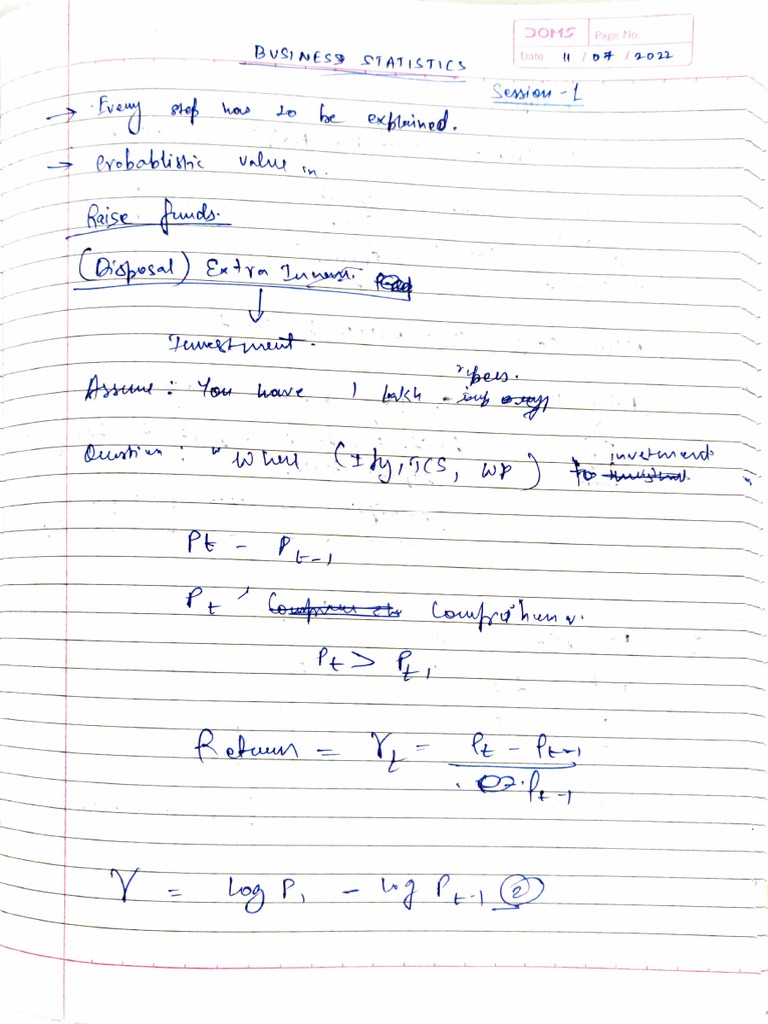 DOMS Page No.
Date 11 / 07 / 2022
BUSINESS STATISTICS
Session - 1
→ Every step has to be explained.
→ Probablistic value in.
Raise funds.
(Disposal) Extra
↓
Investment.
rupees.
Assume : You have 1 lakh
investment
Question : " Where (Ify, TCS, WP)
Pt - Pt-1
Pt
Pt > Pt1
Return = rt = Pt - Pt-1
Pt-1
r = log P1 - log Pt-1 (2)